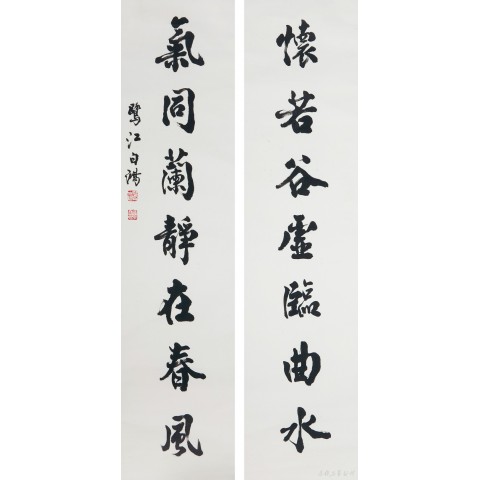 懷若谷虛臨曲水
氣同蘭靜在春風
鷺江白鴻